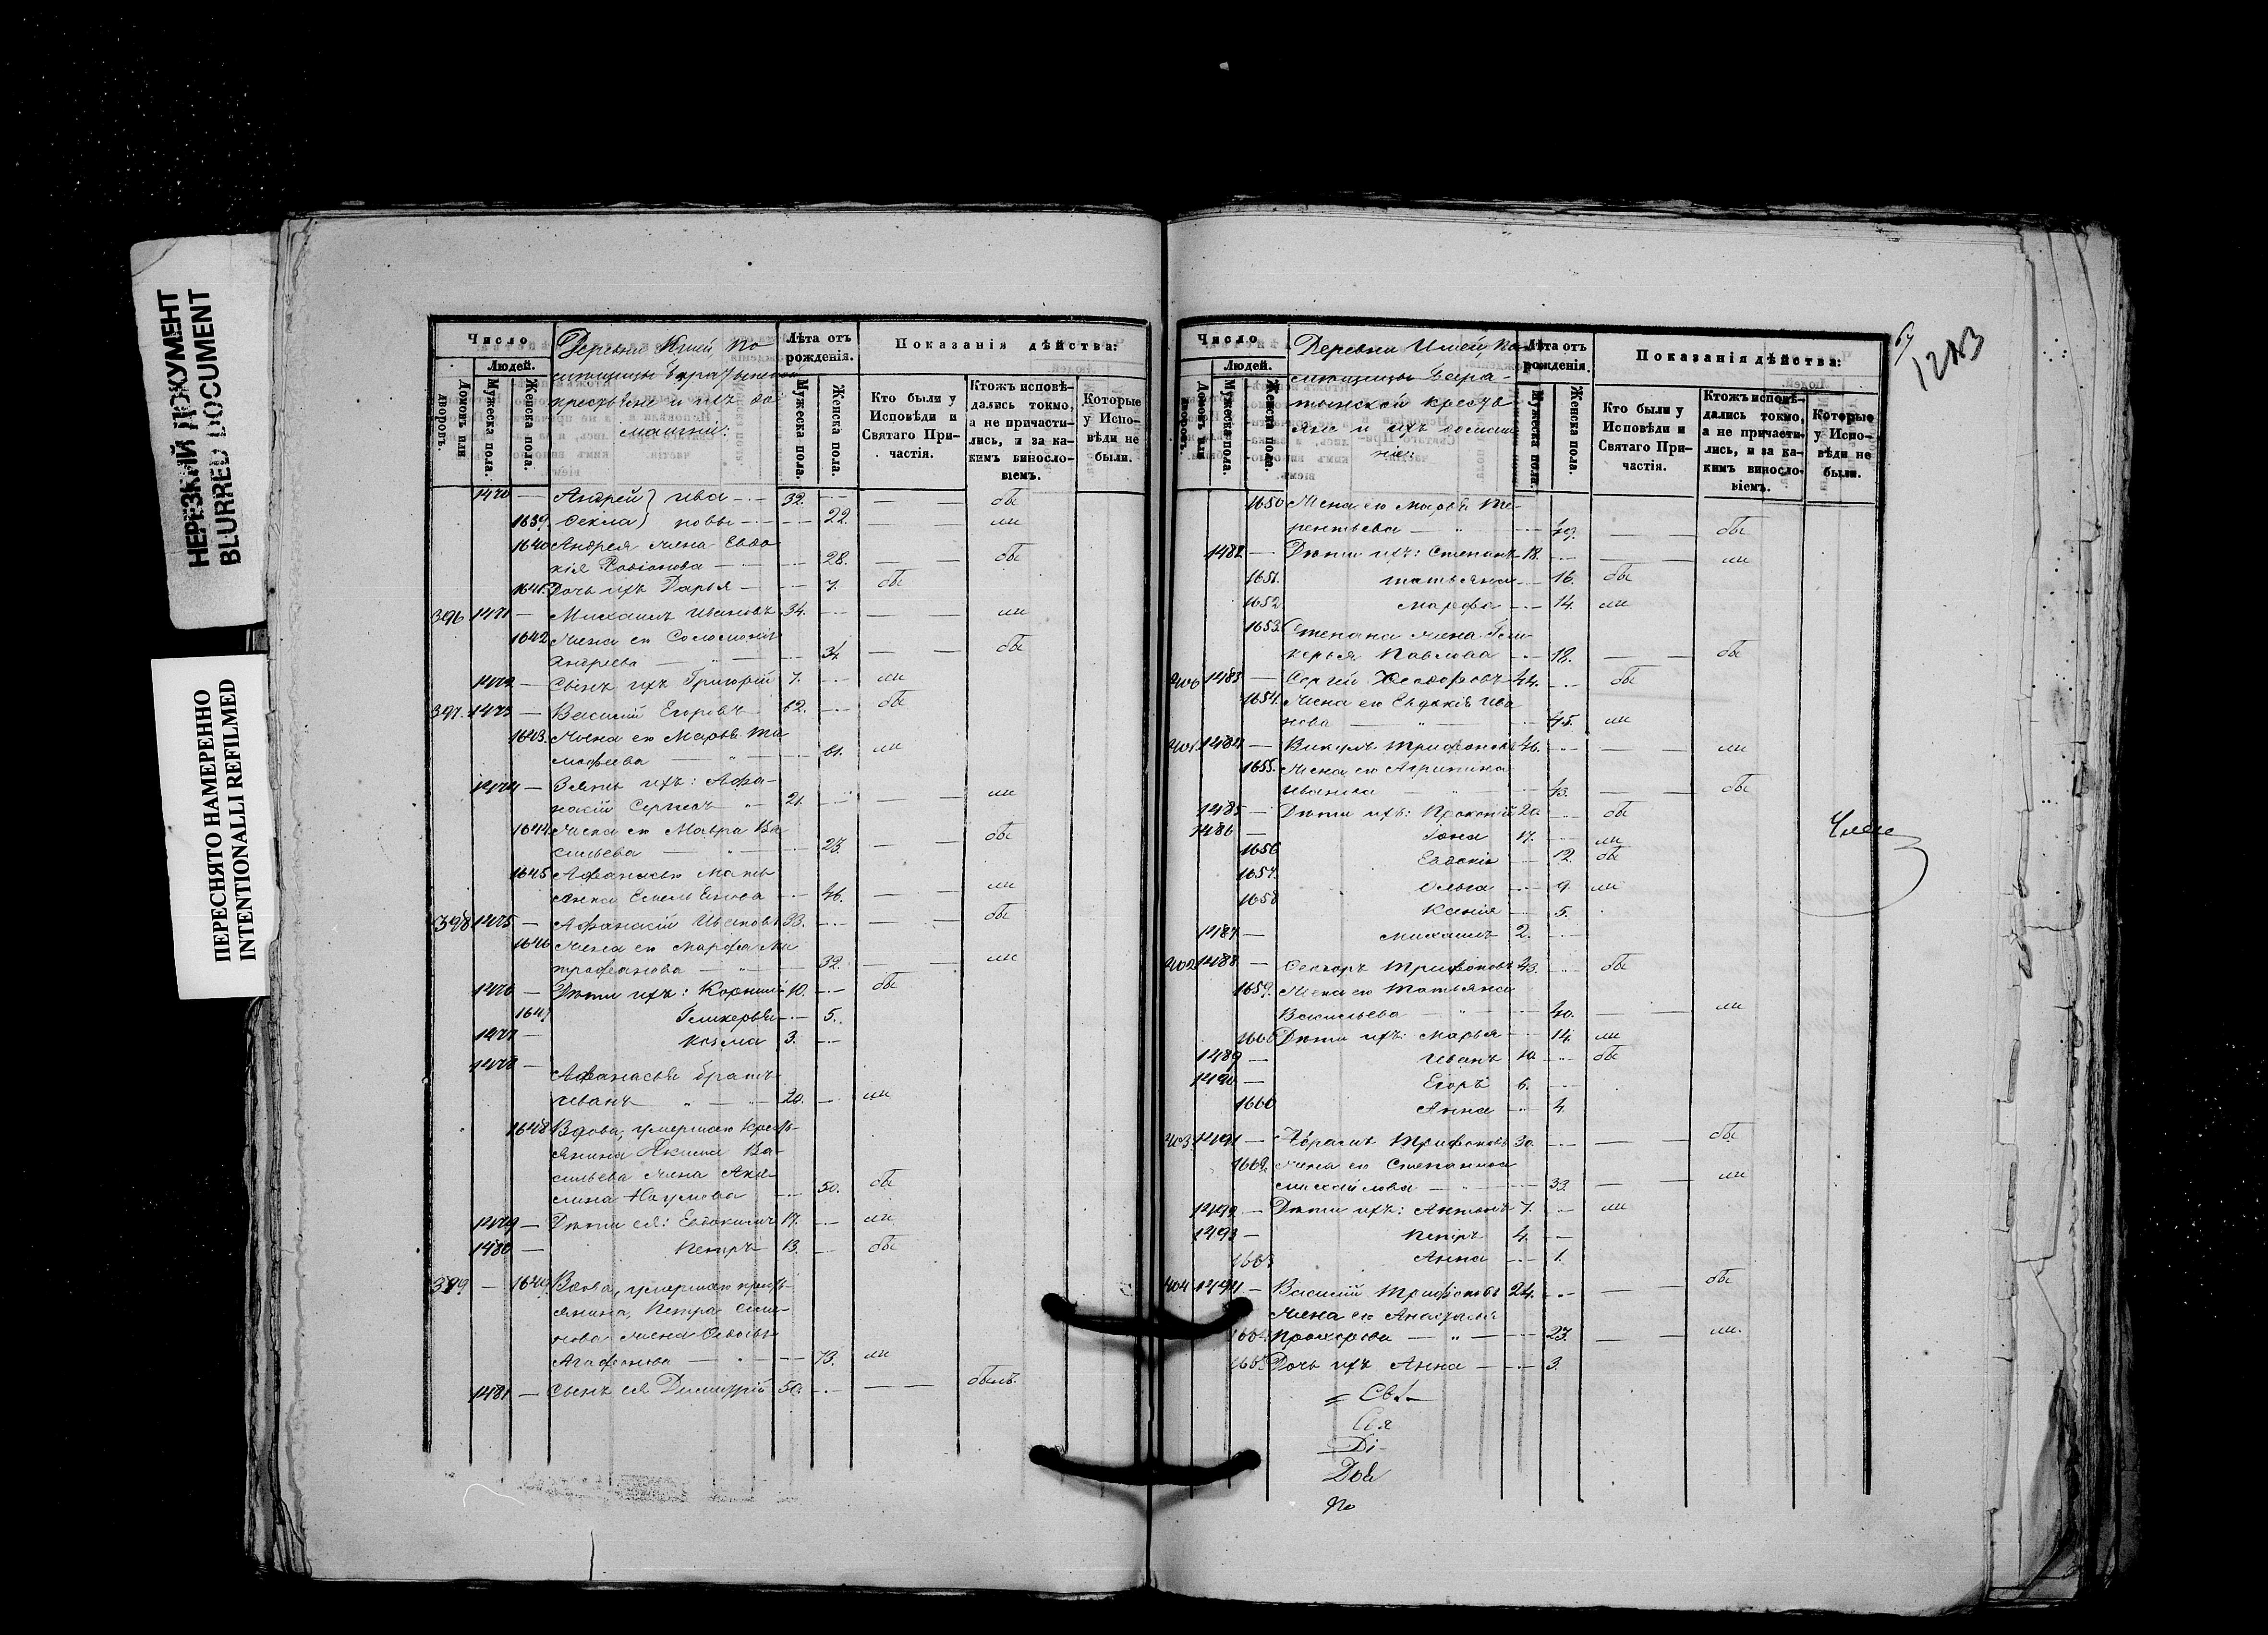 НЕРЕЗКИЙ ДОКУМЕНТ
BLURRED DOCUMENT
ПЕРЕСНЯТО НАМЕРЕННО
INTENTIONALLI REFILMED
Число
Людей.
Домовъ или дворовъ.
Мужеска пола.
Женска пола.
Деревни
крестьяне и ихъ до
машніи:
Лѣта отъ рожденія.
Мужеска пола.
Женска пола.
Показанія дѣйства:
Кто были у Исповѣди и Святаго Причастія.
Ктожъ исповѣдались токмо, а не причастились, и за какимъ винословіемъ.
Которые у Исповѣди не были.
1470 — Андрей } Ива — 32. — обы
1639. Текла } новы — 22. — ли
1640 Андрея жена Евдо
кія — 28. — обы
1641. Дочь ихъ Дарья — 7. обы
396 1471 — Михаилъ Ивановъ 34. — ли
1642 Жена ею Соломонія
Андреева — 34 — обы
1472 — Сынъ ихъ Григорій 7. — ли
397. 1473 — Василій Егоровъ 62. — обы
1643. Жена ею Марья Ти
мофеева — 61. ли
1474 — Зять ихъ: Афа-
насій Сергеевъ 21. — ли
1644 Жена ею Мавра Ва
сильева — 23. — обы
1645 Афанасью мать
46. — ли
398 1475 — Афанасій Ивановъ 33. — обы
1646 Жена ею Марфа Ми
трофанова — 32. — ли
1476 — Дѣти ихъ: Корнилій 10. — обы
1647 Гликерья — 5.
1477 — Козма 3. —
1478 — Афанасья братъ
Иванъ — 20. — ли
1648 Вдова, умершаю кресть-
янина Акима Ва-
сильева жена Аку-
лина Наумова — 50. обы
1479 — Дѣти ея: Евдокимъ 17. — ли
1480 — Петръ 13. — обы
399 — 1649 Вдова, умершаю кресть-
янина, Петра Сим-
нова жена
Агафонова — 73. ли
1481 — Сынъ ея Димитрій 50. — былъ.
67
1213
Число
Людей.
Домовъ или дворовъ.
Мужеска пола.
Женска пола.
Деревни
крестья
не и ихъ домаш
ніе:
Лѣта отъ рожденія.
Мужеска пола.
Женска пола.
Показанія дѣйства:
Кто были у Исповѣди и Святаго Причастія.
Ктожъ исповѣдались токмо, а не причастились, и за какимъ винословіемъ.
Которые у Исповѣди не были.
1650 Жена ею Марья Те-
рентьева — 49. — обы
1482 — Дѣти ихъ: Степанъ 18. — ли
1651. Татьяна — 16. обы
1652 Марфа — 14. ли
1653. Степана жена Гли-
керья Павлова — 18. — обы
400 1483 — Сергій Ѳеодоровъ 44. — обы
1654. Жена ею Евдокія Ива
нова — 45. ли
401. 1484 — Трифоновъ 46. — ли
1655. Жена ею Агрипина
Иванова — 43. — обы
1485 — Дѣти ихъ: Прокопій 20. — обы
1486 — Іона 17. — ли
1656 Евдокія — 12. обы
1657. Ольга — 9. ли
1658 Ксенія — 5.
1487 — Михаилъ 2. —
402 1488 — Трифоновъ 43. — обы
1659. Жена ею Татьяна
Васильева — 40. — ли
1660 Дѣти ихъ: Марья — 14. ли
1489 — Иванъ 10 — обы
1490 — Егоръ 6. —
1660 Анна — 4.
403. 1491 — Абрамъ Трифоновъ 30. — обы
1662 Жена ею Степанида
Михайлова — 33. — ли
1492 — Дѣти ихъ: Антонъ 7. — ли
1493 — Петръ 4. —
Анна — 1.
404 1494 — Василій Трифоновъ 24. — обы
Жена ею Анастасія
Прохорова — 23. — ли.
Дочь ихъ Анна — 3.
Св
Ди
Дов
По